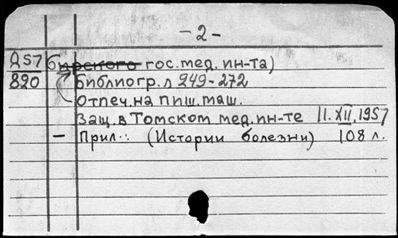 - 2 -
Д57 бирского гос. мед. ин-та)
820 Библиогр. л 249-272
Отпеч. на пиш. маш.
Защ. в Томском мед. ин-те 11.XII.1957
- Прил.: (Истории болезни) 108 л.